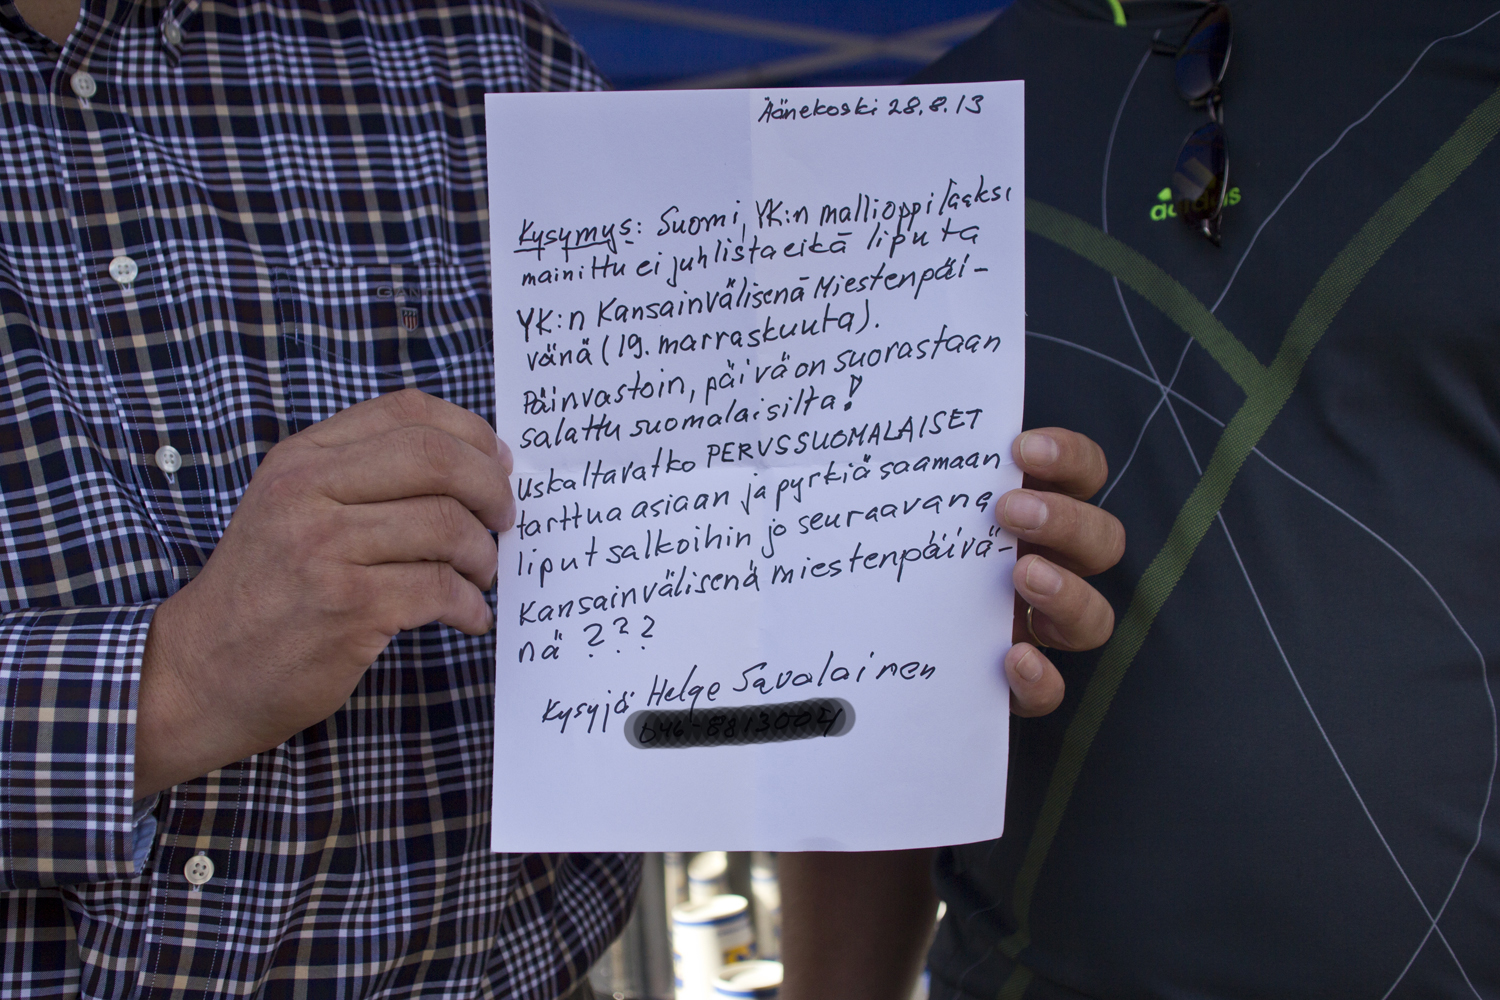 Äänekoski 28.8.13
Kysymys: Suomi, YK:n mallioppilaaksi
mainittu ei juhlista eikä liputa
YK:n Kansainvälisenä Miestenpäi-
vänä (19. marraskuuta).
Päinvastoin, päivä on suorastaan
salattu suomalaisilta!
Uskaltavatko PERUSSUOMALAISET
tarttua asiaan ja pyrkiä saamaan
liput salkoihin jo seuraavana
Kansainvälisenä miestenpäivä-
nä ???
Kysyjä Helge Savalainen
GANT
adidas